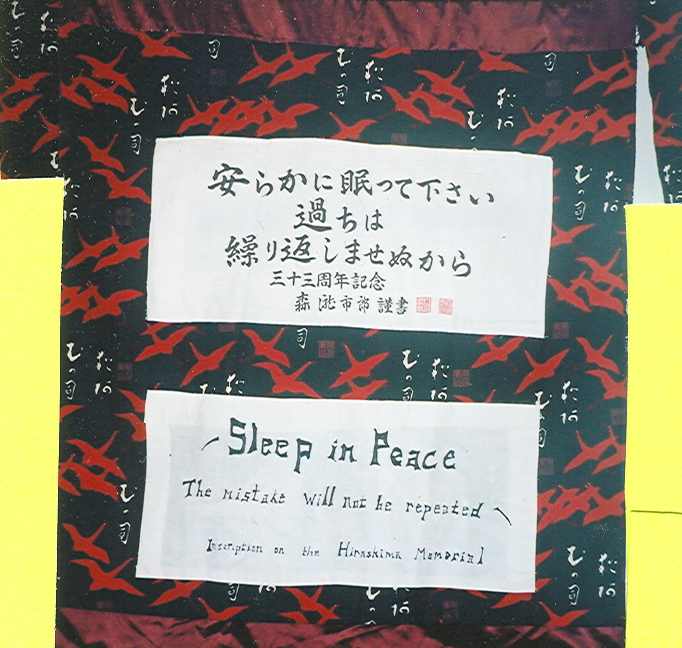 安らかに眠って下さい
過ちは
繰り返しませぬから
三十三周年記念
森滝市郎 謹書
Sleep in Peace
The mistake will not be repeated
Inscription on the Hiroshima Memorial